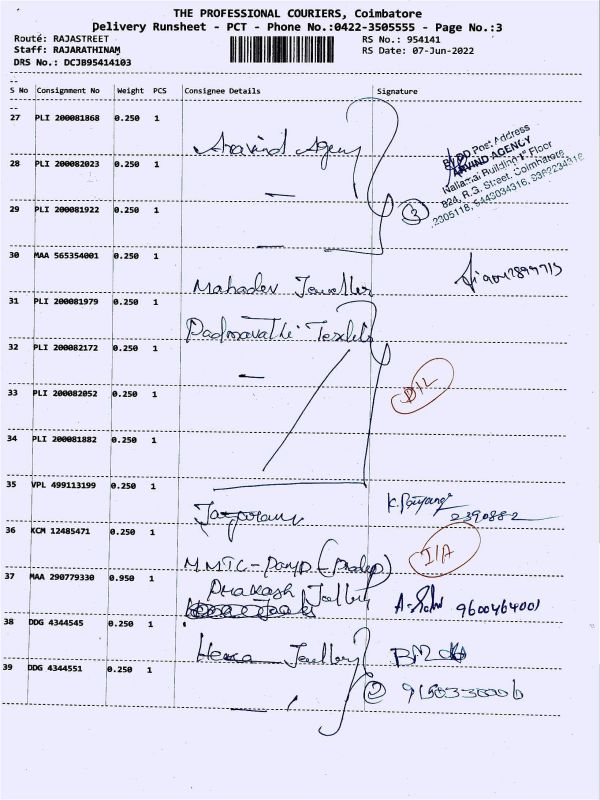 THE PROFESSIONAL COURIERS, Coimbatore
Delivery Runsheet - PCT - Phone No.:0422-3505555 - Page No.:3
Route: RAJASTREET
RS No.: 954141
Staff: RAJARATHINAM
RS Date: 07-Jun-2022
DRS No.: DCJB95414103
S No Consignment No Weight PCS Consignee Details Signature
27 PLI 200081868 0.250 1
Aravind Agency
28 PLI 200082023 0.250 1
29 PLI 200081922 0.250 1
3
BVDD Post Address
ARVIND AGENCY
Nallamai Building 1st Floor
824, R.G. Street, Coimbatore
30 MAA 565354001 0.250 1
Mahadev Jewellers
31 PLI 200081979 0.250 1
Padmavathi Textiles
32 PLI 200082172 0.250 1
33 PLI 200082052 0.250 1
D/L
34 PLI 200081882 0.250 1
35 VPL 499113199 0.250 1
2390882
36 KCM 12485471 0.250 1
MMTC-Pamp (Pradeep)
I/A
37 MAA 290779330 0.950 1
Prakash
9600464001
38 DDG 4344545 0.250 1
Hema Jewellery
39 DDG 4344551 0.250 1
2